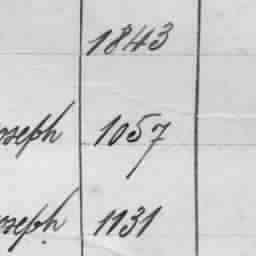 1843
oseph 1057
oseph 1131